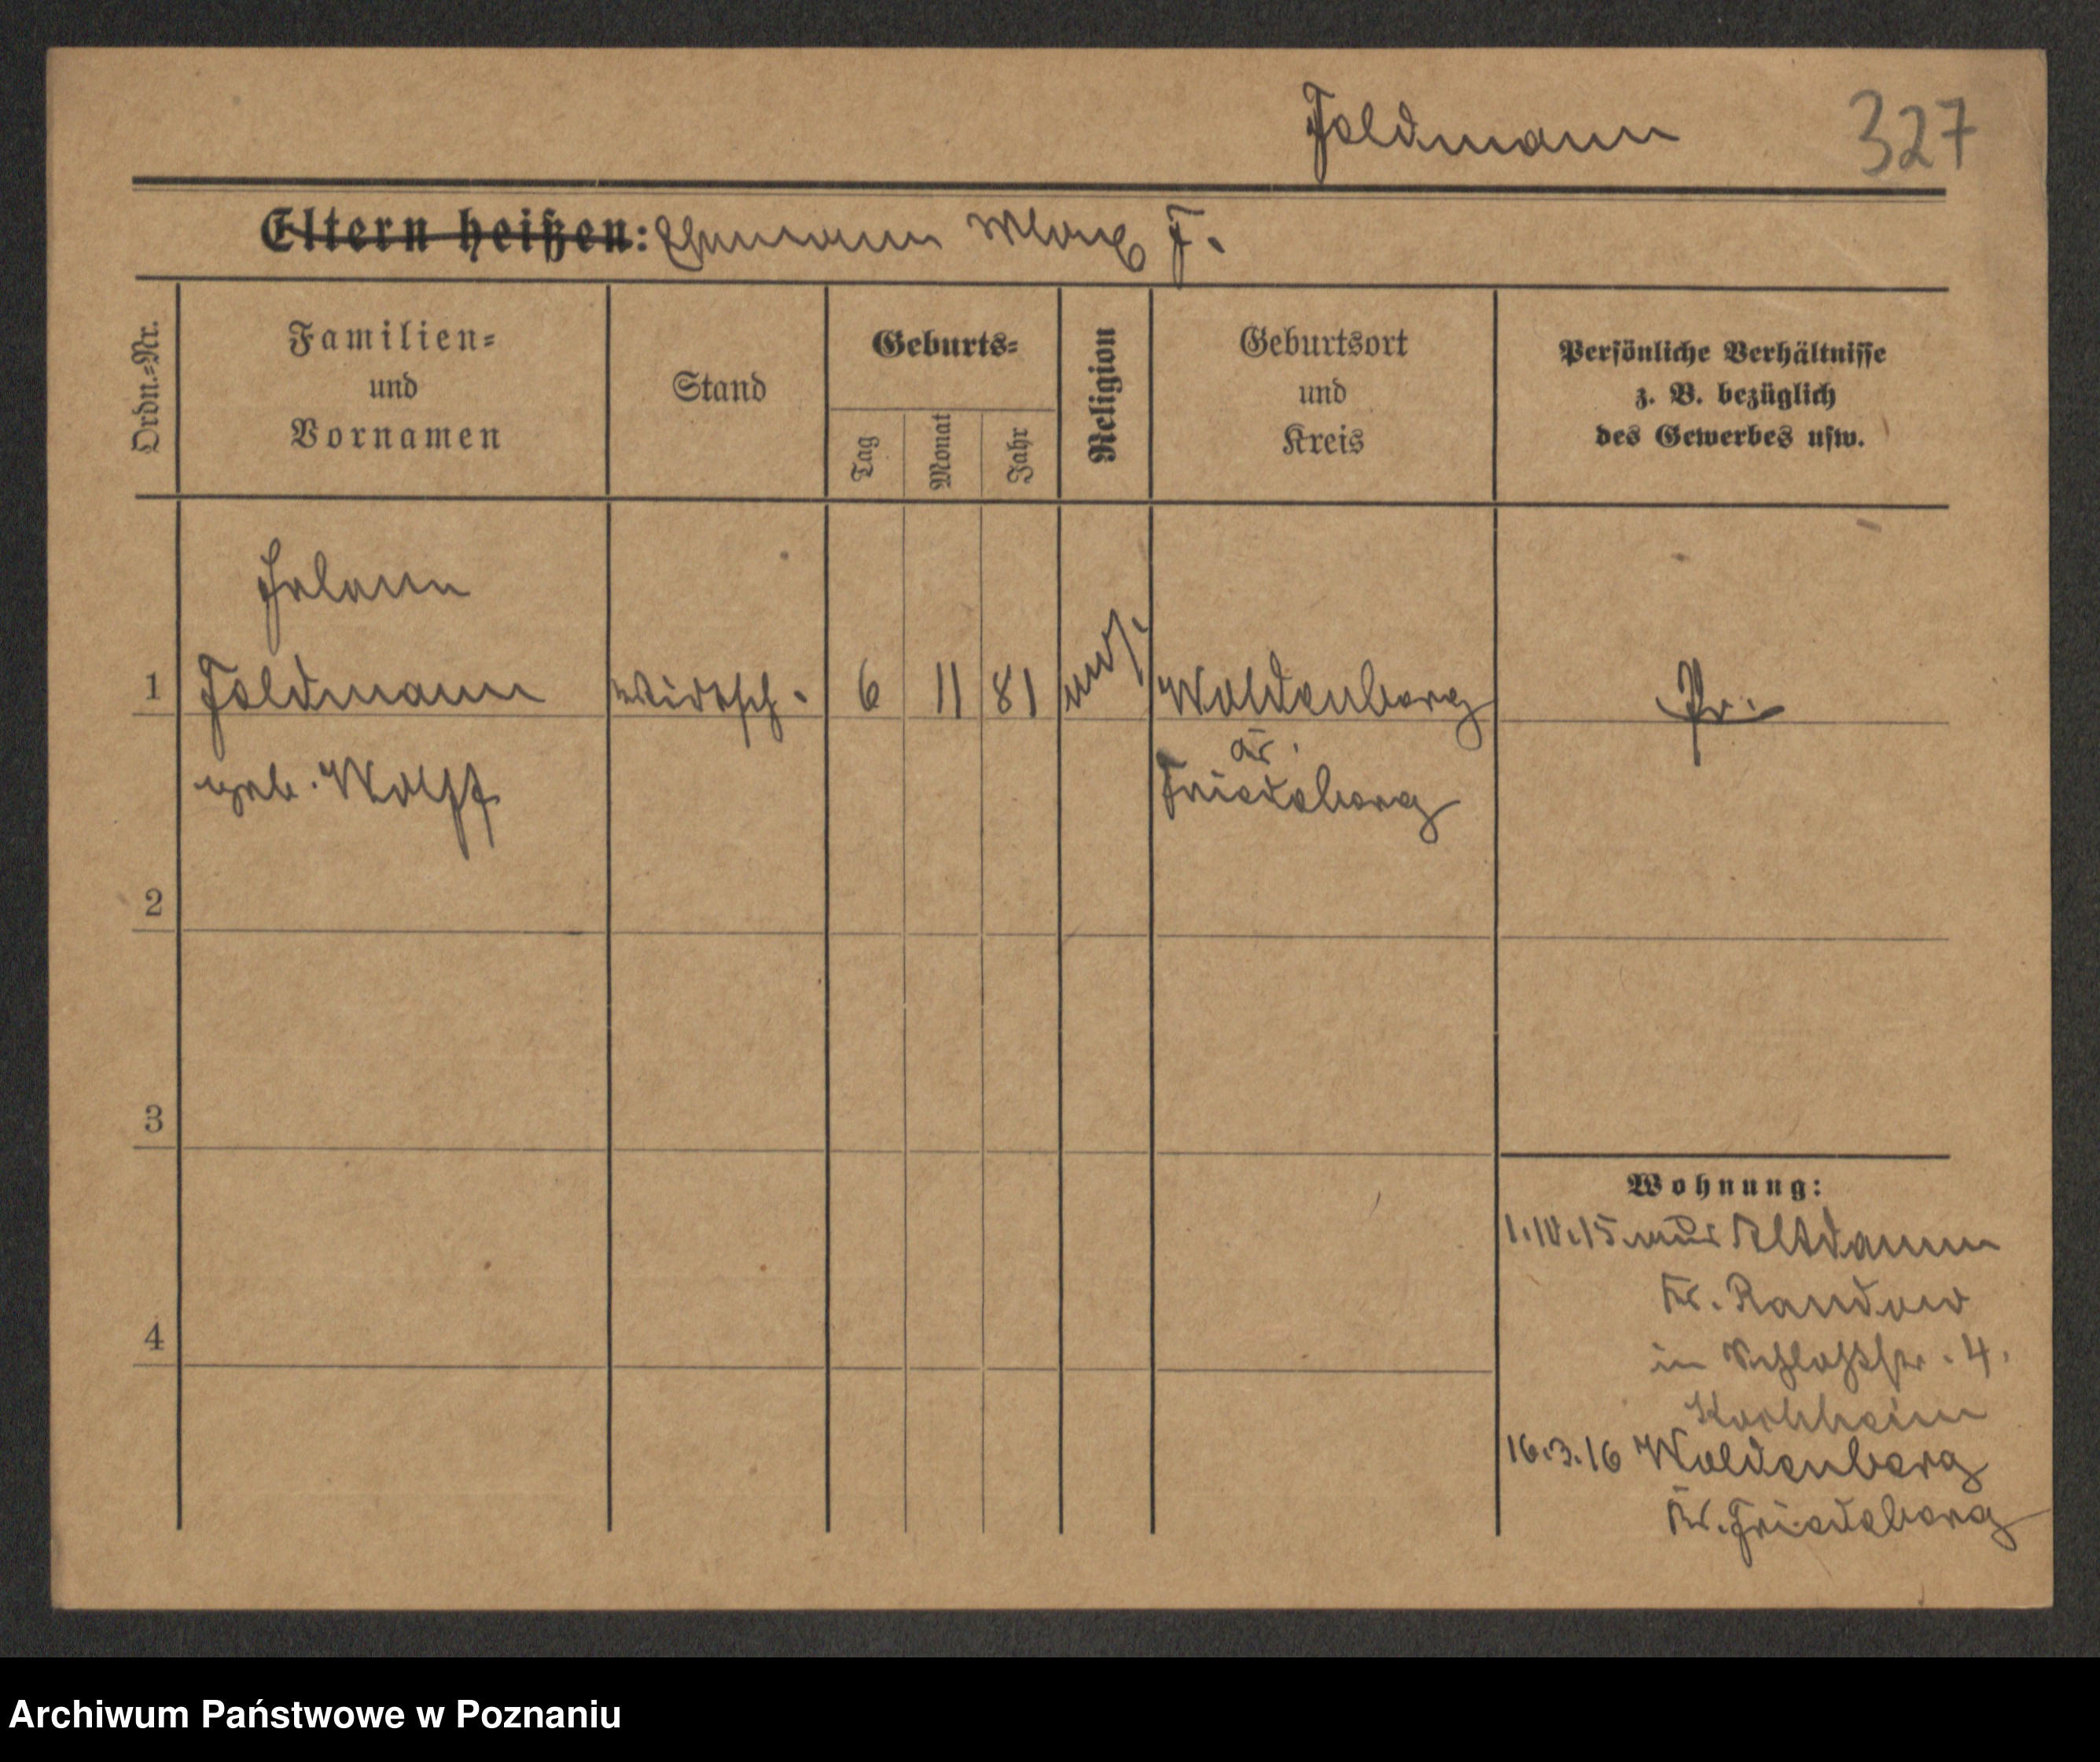 Feldmann 327
Eltern heißen: Ehemann Max F.
Ordn.-Nr.
Familien-
und
Vornamen
Stand
Geburts-
Tag
Monat
Jahr
Religion
Geburtsort
und
Kreis
Persönliche Verhältnisse
z. B. bezüglich
des Gewerbes usw.
Helene
1 Feldmann Wirtsch. 6 11 81 mos. Woldenberg Pr.
geb. Wolff
Kr.
Friedeberg
2
3
4
Wohnung:
1.10.15 aus Altdamm
Kr. Randow
in Schloßstr. 4.
16.3.16 Woldenberg
Kr. Friedeberg
Archiwum Państwowe w Poznaniu